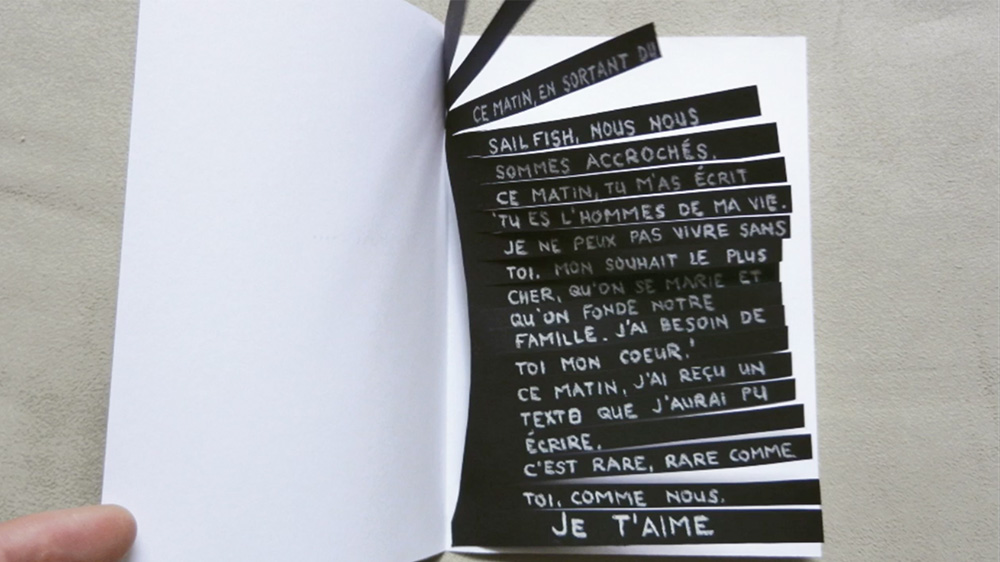 CE MATIN, EN SORTANT DU
SAILFISH, NOUS NOUS
SOMMES ACCROCHÉS.
CE MATIN, TU M'AS ÉCRIT
'TU ES L'HOMMES DE MA VIE.
JE NE PEUX PAS VIVRE SANS
TOI. MON SOUHAIT LE PLUS
CHER, QU'ON SE MARIE ET
QU'ON FONDE NOTRE
FAMILLE. J'AI BESOIN DE
TOI MON COEUR.'
CE MATIN, J'AI REÇU UN
TEXTO QUE J'AURAI PU
ÉCRIRE.
C'EST RARE, RARE COMME
TOI, COMME NOUS.
JE T'AIME